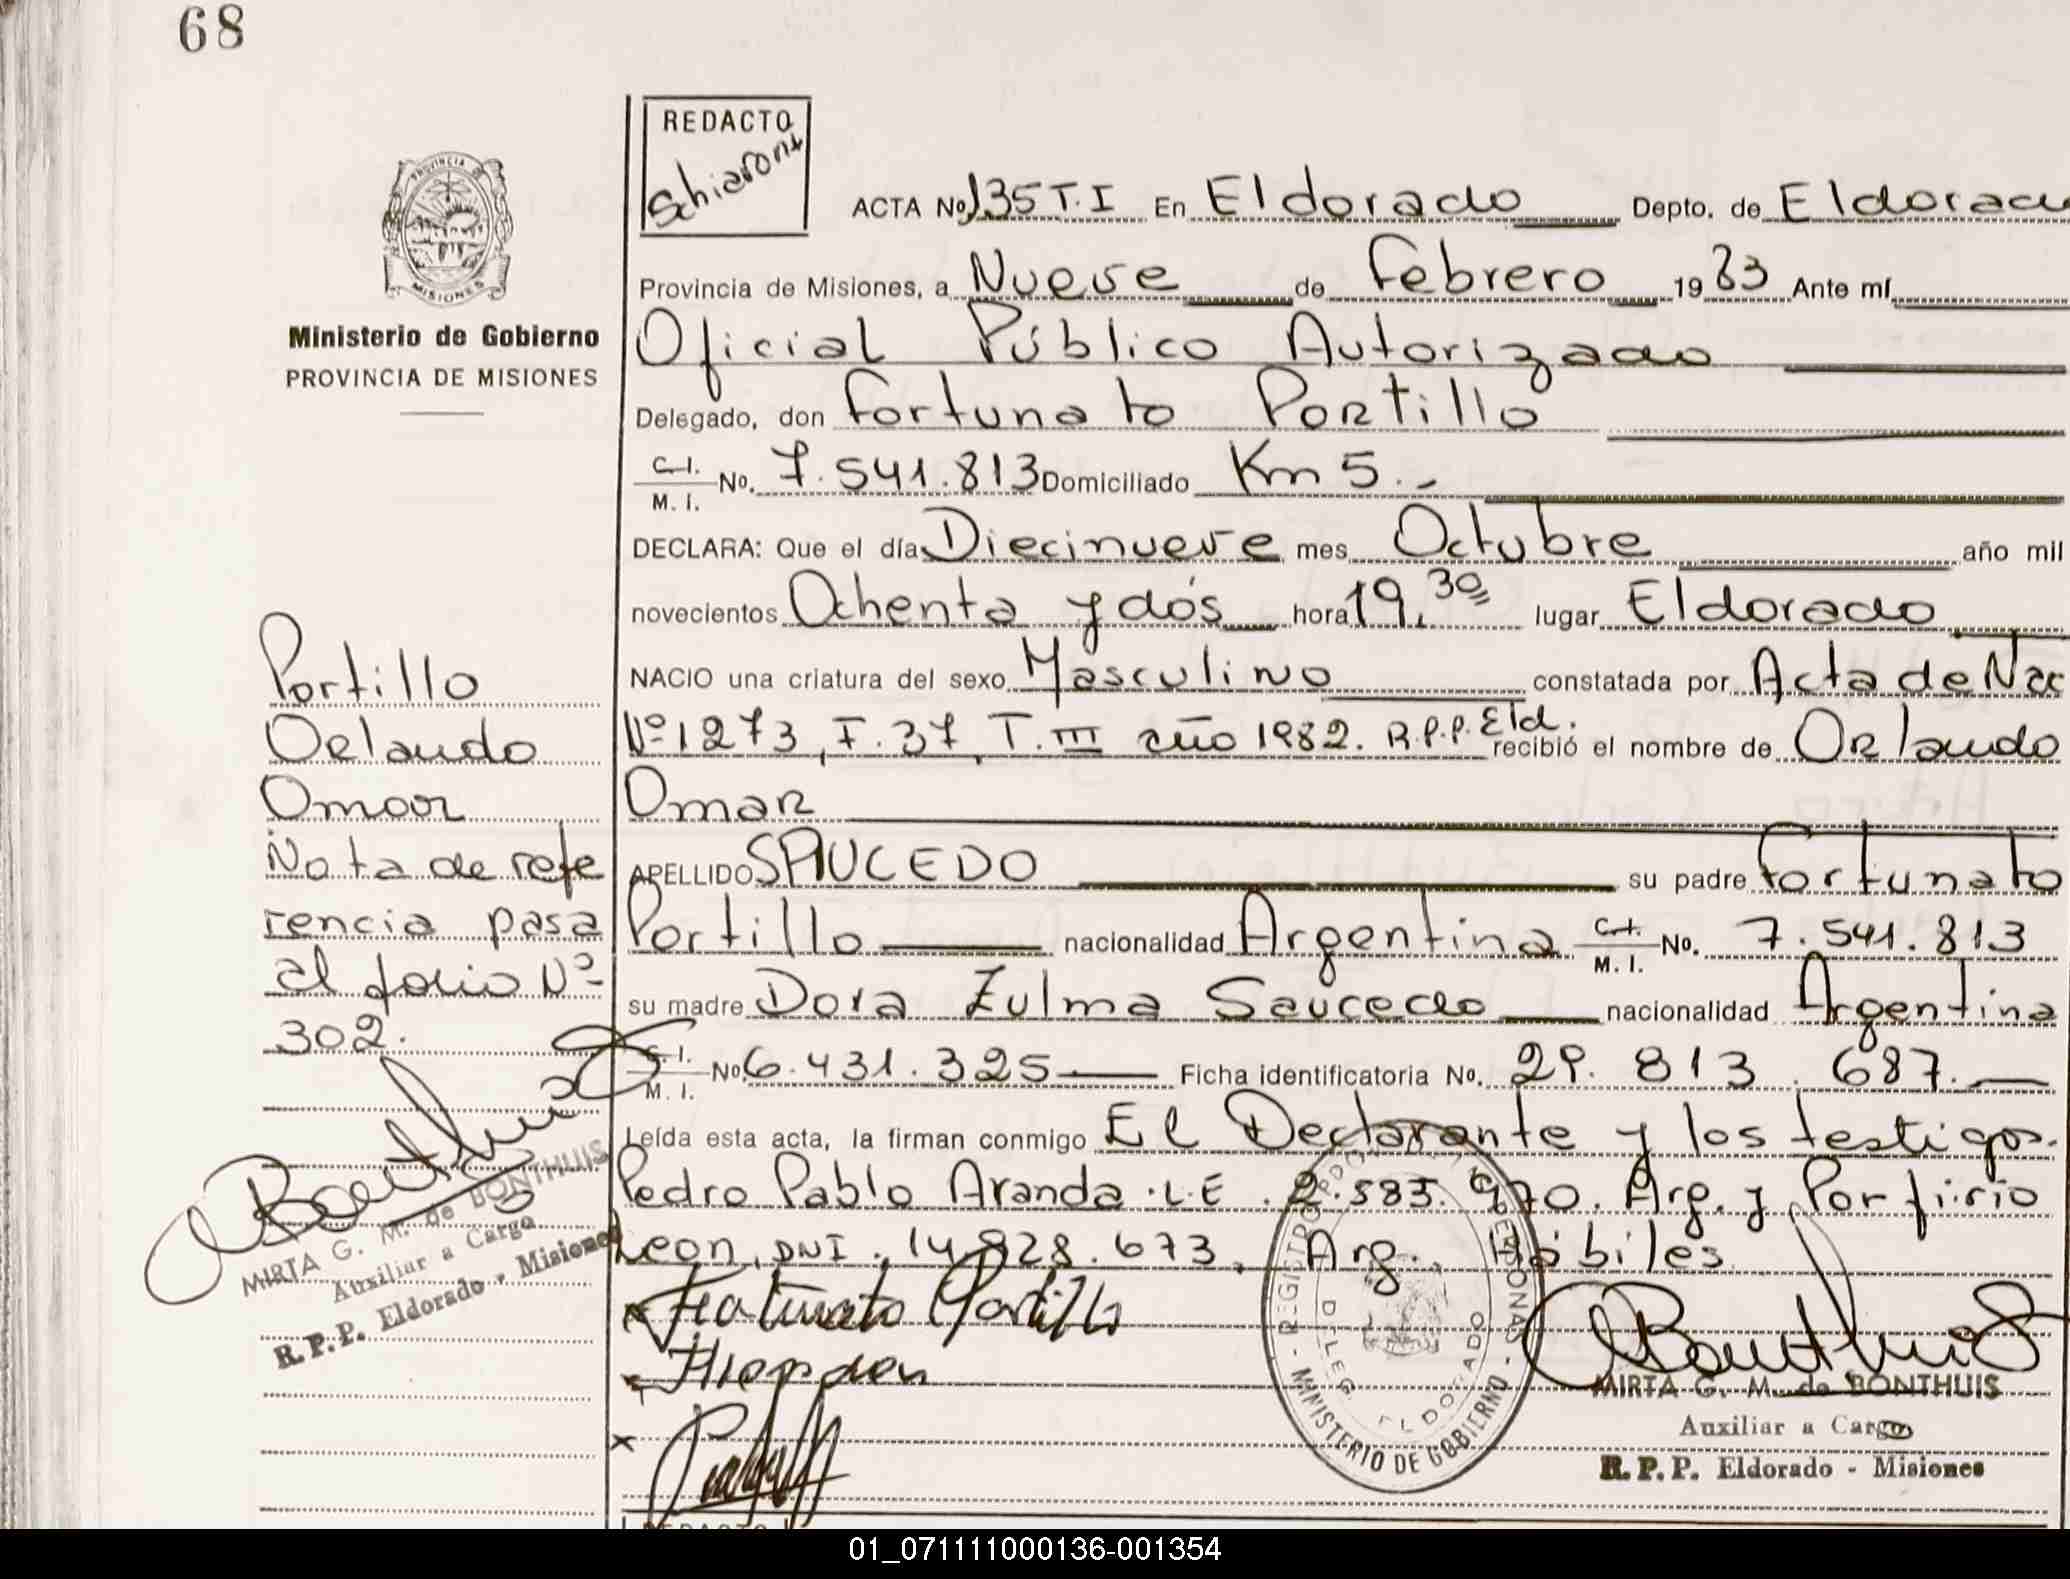 68
REDACTO
Schiaroni
PROVINCIA DE
MISIONES
Ministerio de Gobierno
PROVINCIA DE MISIONES
ACTA No. 135 T.I En Eldorado Depto. de Eldorado
Provincia de Misiones, a Nueve de Febrero 1983 Ante mí
Oficial Público Autorizado
Delegado, don Fortunato Portillo
C.I. M. I. No. 7.541.813 Domiciliado Km 5.-
DECLARA: Que el día Diecinueve mes Octubre año mil
novecientos Ochenta y dós hora 19,30 lugar Eldorado
NACIO una criatura del sexo Masculino constatada por Acta de Nac
Nº 1273, F. 37, T. III año 1982. R.P.P. Eld. recibió el nombre de Orlando
Omar
APELLIDO SAUCEDO su padre Fortunato
Portillo nacionalidad Argentina C.I. M. I. No. 7.541.813
su madre Dora Zulma Saucedo nacionalidad Argentina
C.I. M. I. No. 6.431.325 Ficha identificatoria No. 29.813.687.
Leída esta acta, la firman conmigo El Declarante y los testigos.
Pedro Pablo Aranda L.E. 2.585.970. Arg. y Porfirio
Leon, DNI. 14.828.673, Arg., Hábiles
Fortunato Portillo
Portillo
Orlando
Omar
Nota de refe
rencia pasa
al folio Nº
302.
MIRTA G. M. de BONTHUIS
Auxiliar a Cargo
R. P. P. Eldorado - Misiones
MINISTERIO DE GOBIERNO
DELEG. ELDORADO
MIRTA G. M. de BONTHUIS
Auxiliar a Cargo
R. P. P. Eldorado - Misiones
01_071111000136-001354